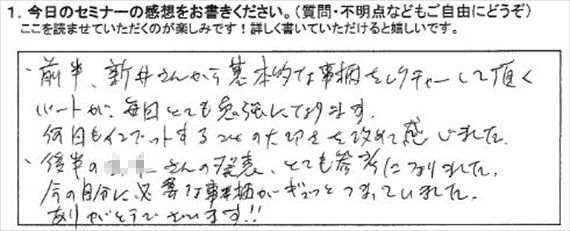 1. 今日のセミナーの感想をお書きください。(質問・不明点などもご自由にどうぞ)
ここを読ませていただくのが楽しみです！詳しく書いていただけると嬉しいです。
・前半、新井さんから基本的な事柄をレクチャーして頂く
パートが、毎回とても勉強になります。
何回もインプットすることの大切さを改めて感じました。
・後半の さんの発表、とても参考になりました。
今の自分に必要な事柄がギュッとつまっていました。
ありがとうございます!!